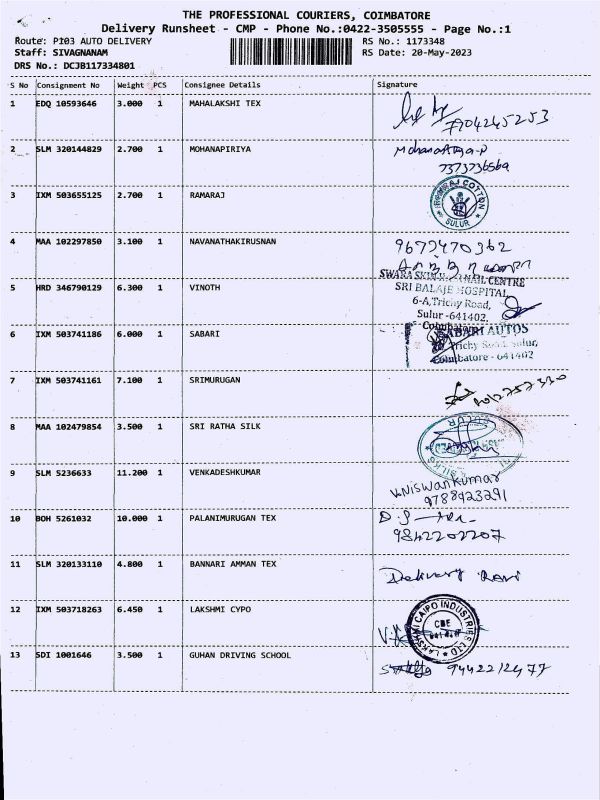 THE PROFESSIONAL COURIERS, COIMBATORE
Delivery Runsheet - CMP - Phone No.:0422-3505555 - Page No.:1
Route: P103 AUTO DELIVERY
Staff: SIVAGNANAM
DRS No.: DCJB117334801
RS No.: 1173348
RS Date: 20-May-2023
S No Consignment No Weight PCS Consignee Details Signature
1 EDQ 10593646 3.000 1 MAHALAKSHI TEX
2 SLM 320144829 2.700 1 MOHANAPIRIYA
7373736569
3 IXM 503655125 2.700 1 RAMARAJ
RAMRAJ COTTON
SULUR
4 MAA 102297850 3.100 1 NAVANATHAKIRUSNAN
5 HRD 346790129 6.300 1 VINOTH
NAIL CENTRE
SRI BALAJE HOSPITAL
6-A, Trichy Road,
Sulur -641402.
Coimbatore
6 IXM 503741186 6.000 1 SABARI
SABARI AUTOS
Trichy Road, Sulur,
Coimbatore - 641402
7 IXM 503741161 7.100 1 SRIMURUGAN
8 MAA 102479854 3.500 1 SRI RATHA SILK
9 SLM 5236633 11.200 1 VENKADESHKUMAR
V.Niswankumar
9788923291
10 BOH 5261032 10.000 1 PALANIMURUGAN TEX
9842202207
11 SLM 320133110 4.800 1 BANNARI AMMAN TEX
Delivery Ravi
12 IXM 503718263 6.450 1 LAKSHMI CYPO
LAKSHMI CAIPO INDUSTRIES LTD
CBE
13 SDI 1001646 3.500 1 GUHAN DRIVING SCHOOL
9442212477